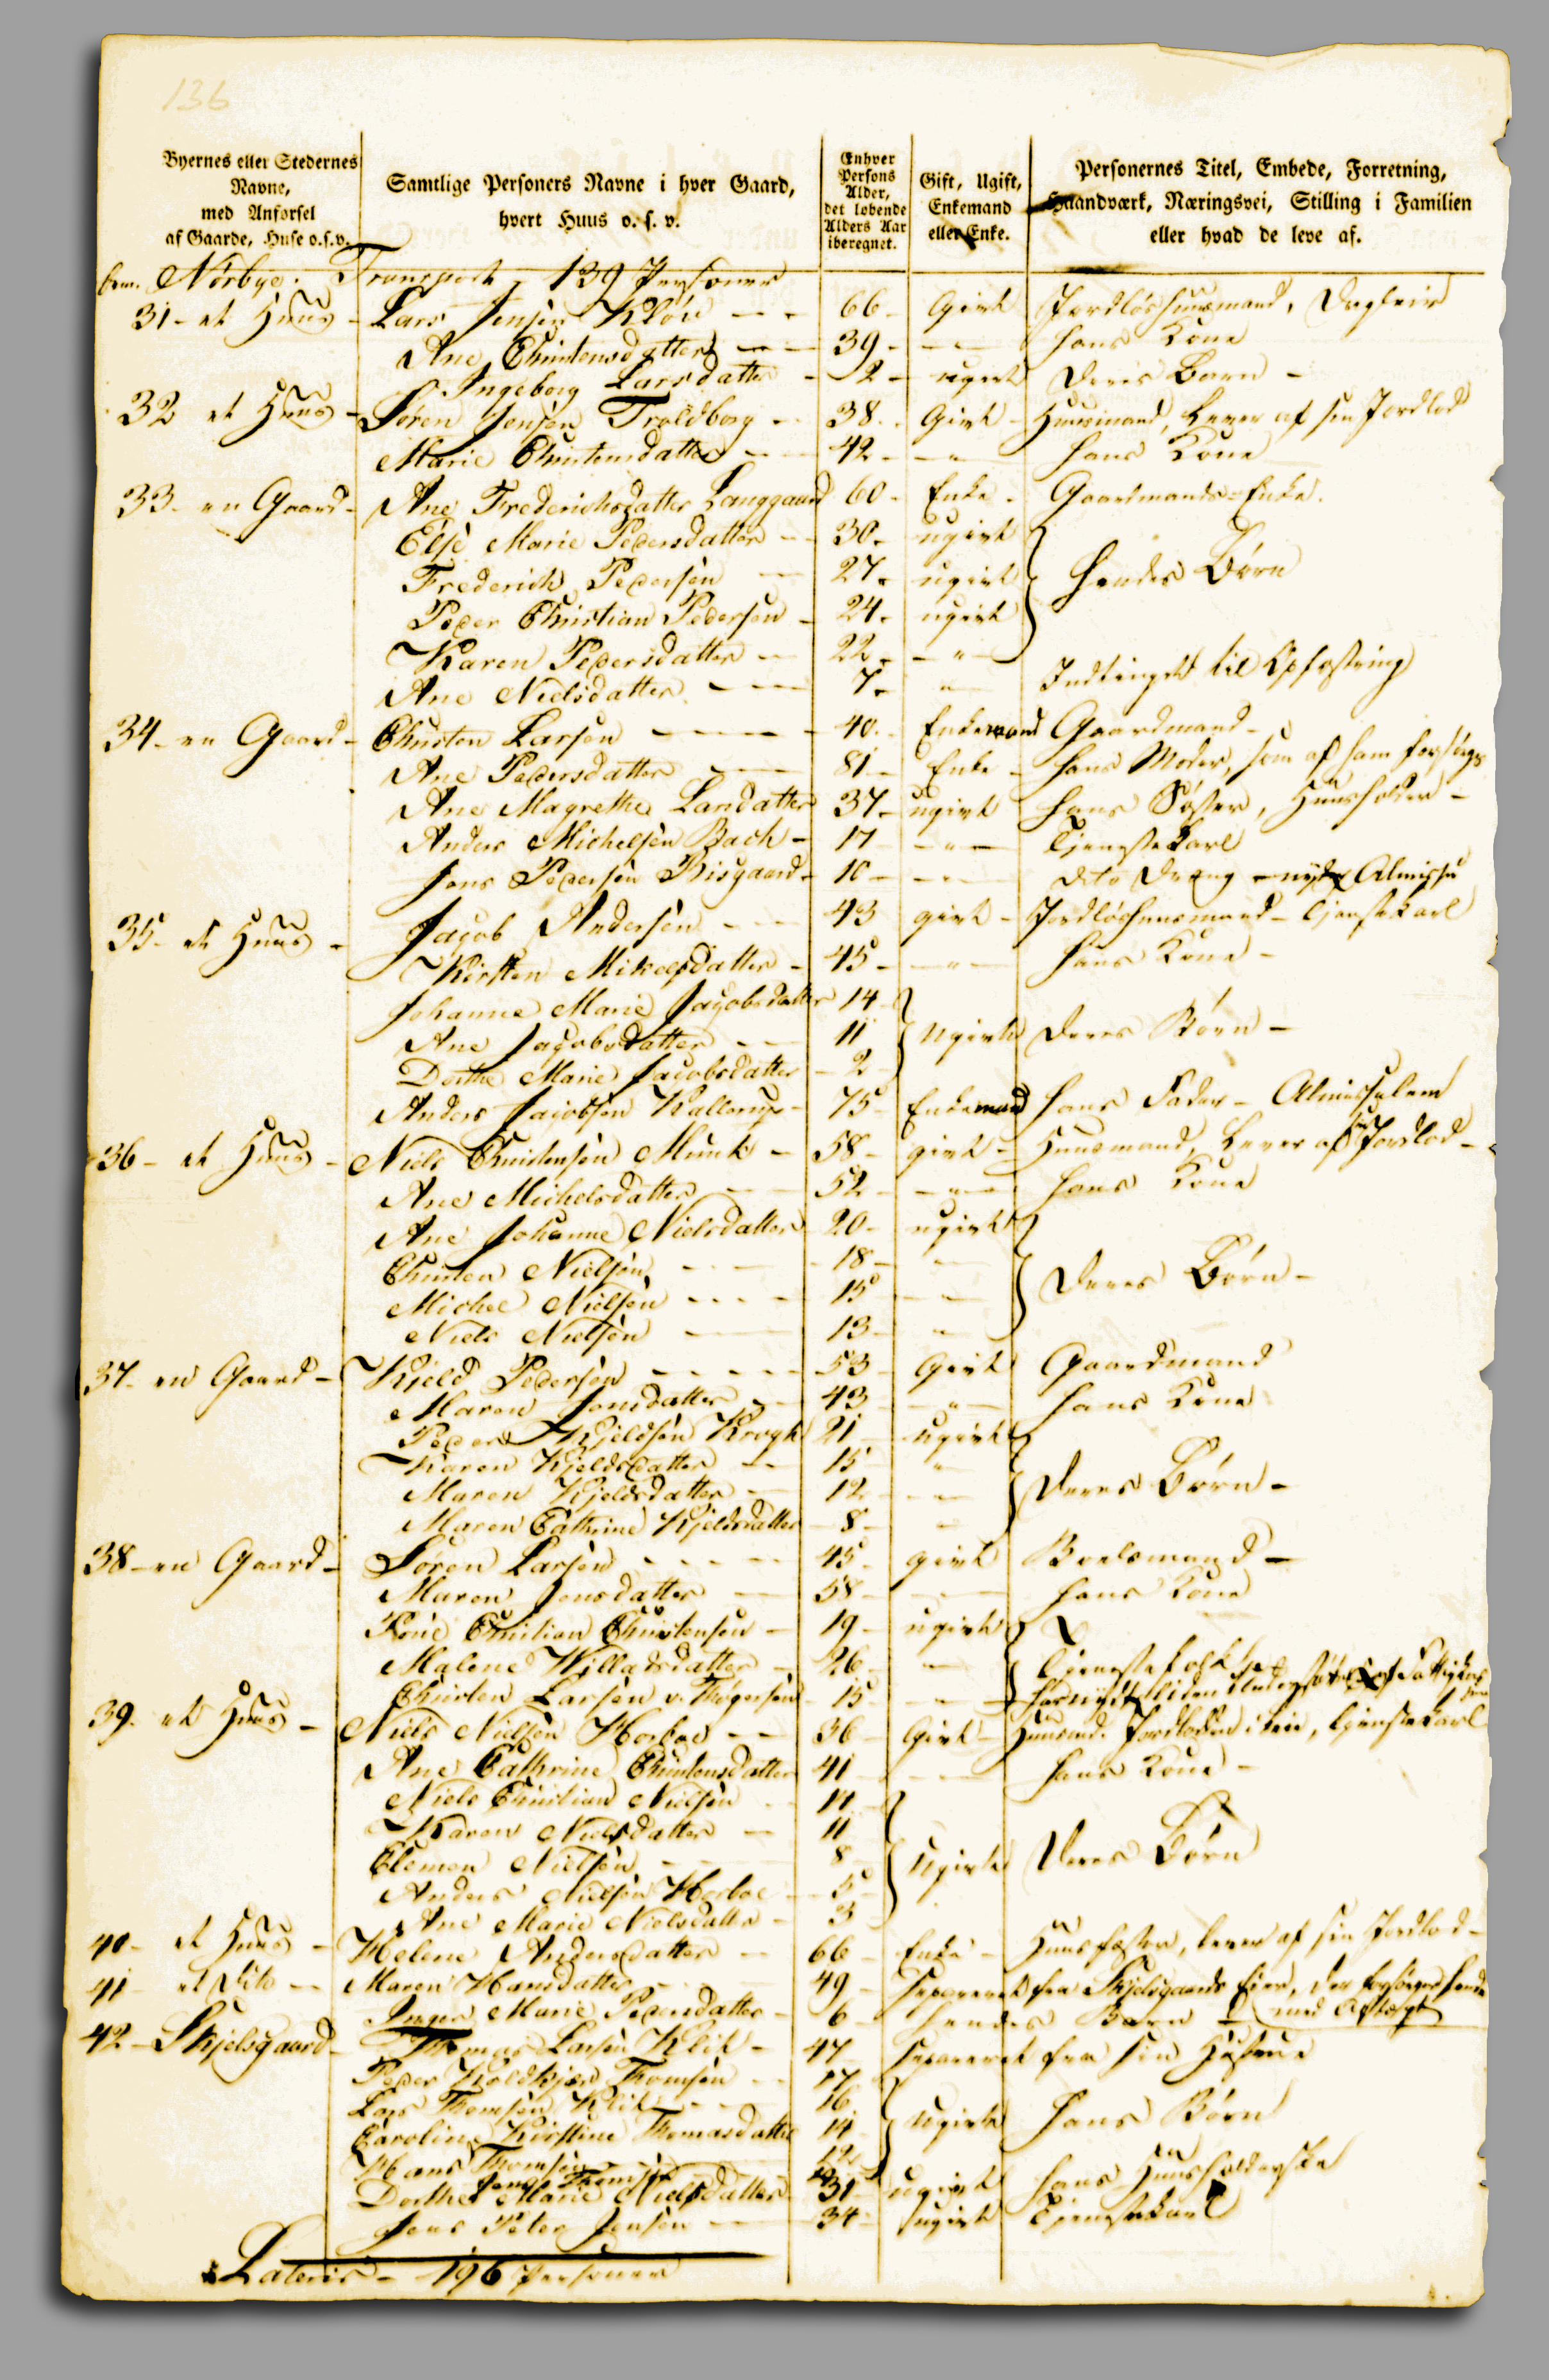 136
Byernes eller Stedernes Navne, med Anførsel af Gaarde, Huse o.s.v.
Samtlige Personers Navne i hver Gaard, hvert Huus o. s. v.
Enhver Persons Alder, det løbende Alders Aar iberegnet.
Gift, Ugift, Enkemand eller Enke.
Personernes Titel, Embede, Forretning, Haandværk, Næringsvei, Stilling i Familien eller hvad de leve af.
Nörbye. Transport 139 Personer
31 - et Huus - Lars Jensen Klöv 66 - Givt Jordlös huusmand, Dagleier
Ane Christensdatter 39 - " - hans Kone
Ingeborg Larsdatter - 2 - ugivt Deres Barn -
32 et Huus - Sören Jensen Troldborg - 38 - Givt - Huusmand, Lever af sin Jordlod
Marie Christensdatter 42 - " - hans Kone
33 - en Gaard - Ane Frederichsdatter Langgaard 60 - Enke - Gaardmands-Enke.
Else Marie Pedersdatter - 30 - ugivt
Frederich Pedersen 27 - ugivt } hendes Börn
Peder Christian Pedersen - 24 - ugivt
Karen Pedersdatter - 22 - " -
Ane Nielsdatter - 7 - " Indtinget til Opfostring
34 - en Gaard - Christen Larsen - 40 - Enkemand Gaardmand -
Ane Pedersdatter 81 - Enke - hans Moder, som af ham forsörges
Ane Magrethe Larsdatter 37 - ugivt hans Söster, Huusholder -
Anders Michelsen Bach - 17 - " - Tjenestekarl
Jens Pedersen Risgaard - 10 - " - dito Dreng - nyder Almisse
35 - et Huus - Jacob Andersen - 43 givt - Jordlöshuusmand - Tjenstekarl
Kirsten Mikelsdatter - 45 - " - hans Kone -
Johanne Marie Jacobsdatter 14
Ane Jacobsdatter - 11 } ugivte Deres Börn -
Dorthe Marie Jacobsdatter - 2
Anders Jacobsen Kallerup - 75 - Enkemand hans Fader - Almisselem
36 - et Huus - Niels Christensen Munk - 58 - givt - Huusmand, Lever af sin Jordlod -
Ane Michelsdatter 52 - " - hans Kone
Ane Johanne Nielsdatter 20 - ugivt
Christen Nielsen - 18 - " -
Michel Nielsen - 15 - " - } Deres Börn -
Niels Nielsen - 13 - "
37 - en Gaard - Kjeld Pedersen - 53 - Givt Gaardmand
Maren Jensdatter - 43 - " - hans Kone
Peder Kjeldsen Krogh 21 - ugivt
Karen Kjeldsdatter - 15 - "
Maren Kjeldsdatter - 12 - " - } Deres Börn -
Maren Cathrine Kjeldsdatter - 8 - "
38 - en Gaard - Sören Larsen - 45 - givt Boelsmand -
Maren Jensdatter - 58 - " - hans Kone
Christian Christensen - 19 - ugivt
Malene Willadsdatter - 26 - " - } Tjenestefolk
Christen Larsen v. Thögersen - 15 - " -
39 - et Huus - Niels Nielsen Horboe - 36 - Givt - Huusmd. Jordlodden i Leie, Tjenstekarl
Ane Cathrine Christensdatter 41 - " - hans Kone -
Niels Christian Nielsen - 14
Karen Nielsdatter - 11
Clemen Nielsen - 8 } ugivte Deres Börn
Anders Nielsen Horboe - 5
Ane Marie Nielsdatter - 3
40 - et Huus - Helene Andersdatter - 66 - Enke - Huusfæster, lever af sin Jordlod -
41 - et Dito - Maren Hansdatter - 49 - Separeret fra Skjelsgaards Eier, der forsörger hende
Inger Marie Pedersdatter - 6 - hendes Barn - med Aftægt
42 - Skjelsgaard - Thomas Larsen Klit - 47 - separeret fra sin Hustrue
Peder Koldkjær Thomsen - 17
Lars Thomsen Klit - 16
Caroline Kirstine Thomasdatter 14 } ugivte hans Börn
Hans Thomsen - 12
Jens Thomsen
Dorthe Marie Nielsdatter - 31 - ugivt hans Huusholderske
Jens Peter Jensen - 34 - ugivt Tjenestekarl
Lateris - 196 Personer